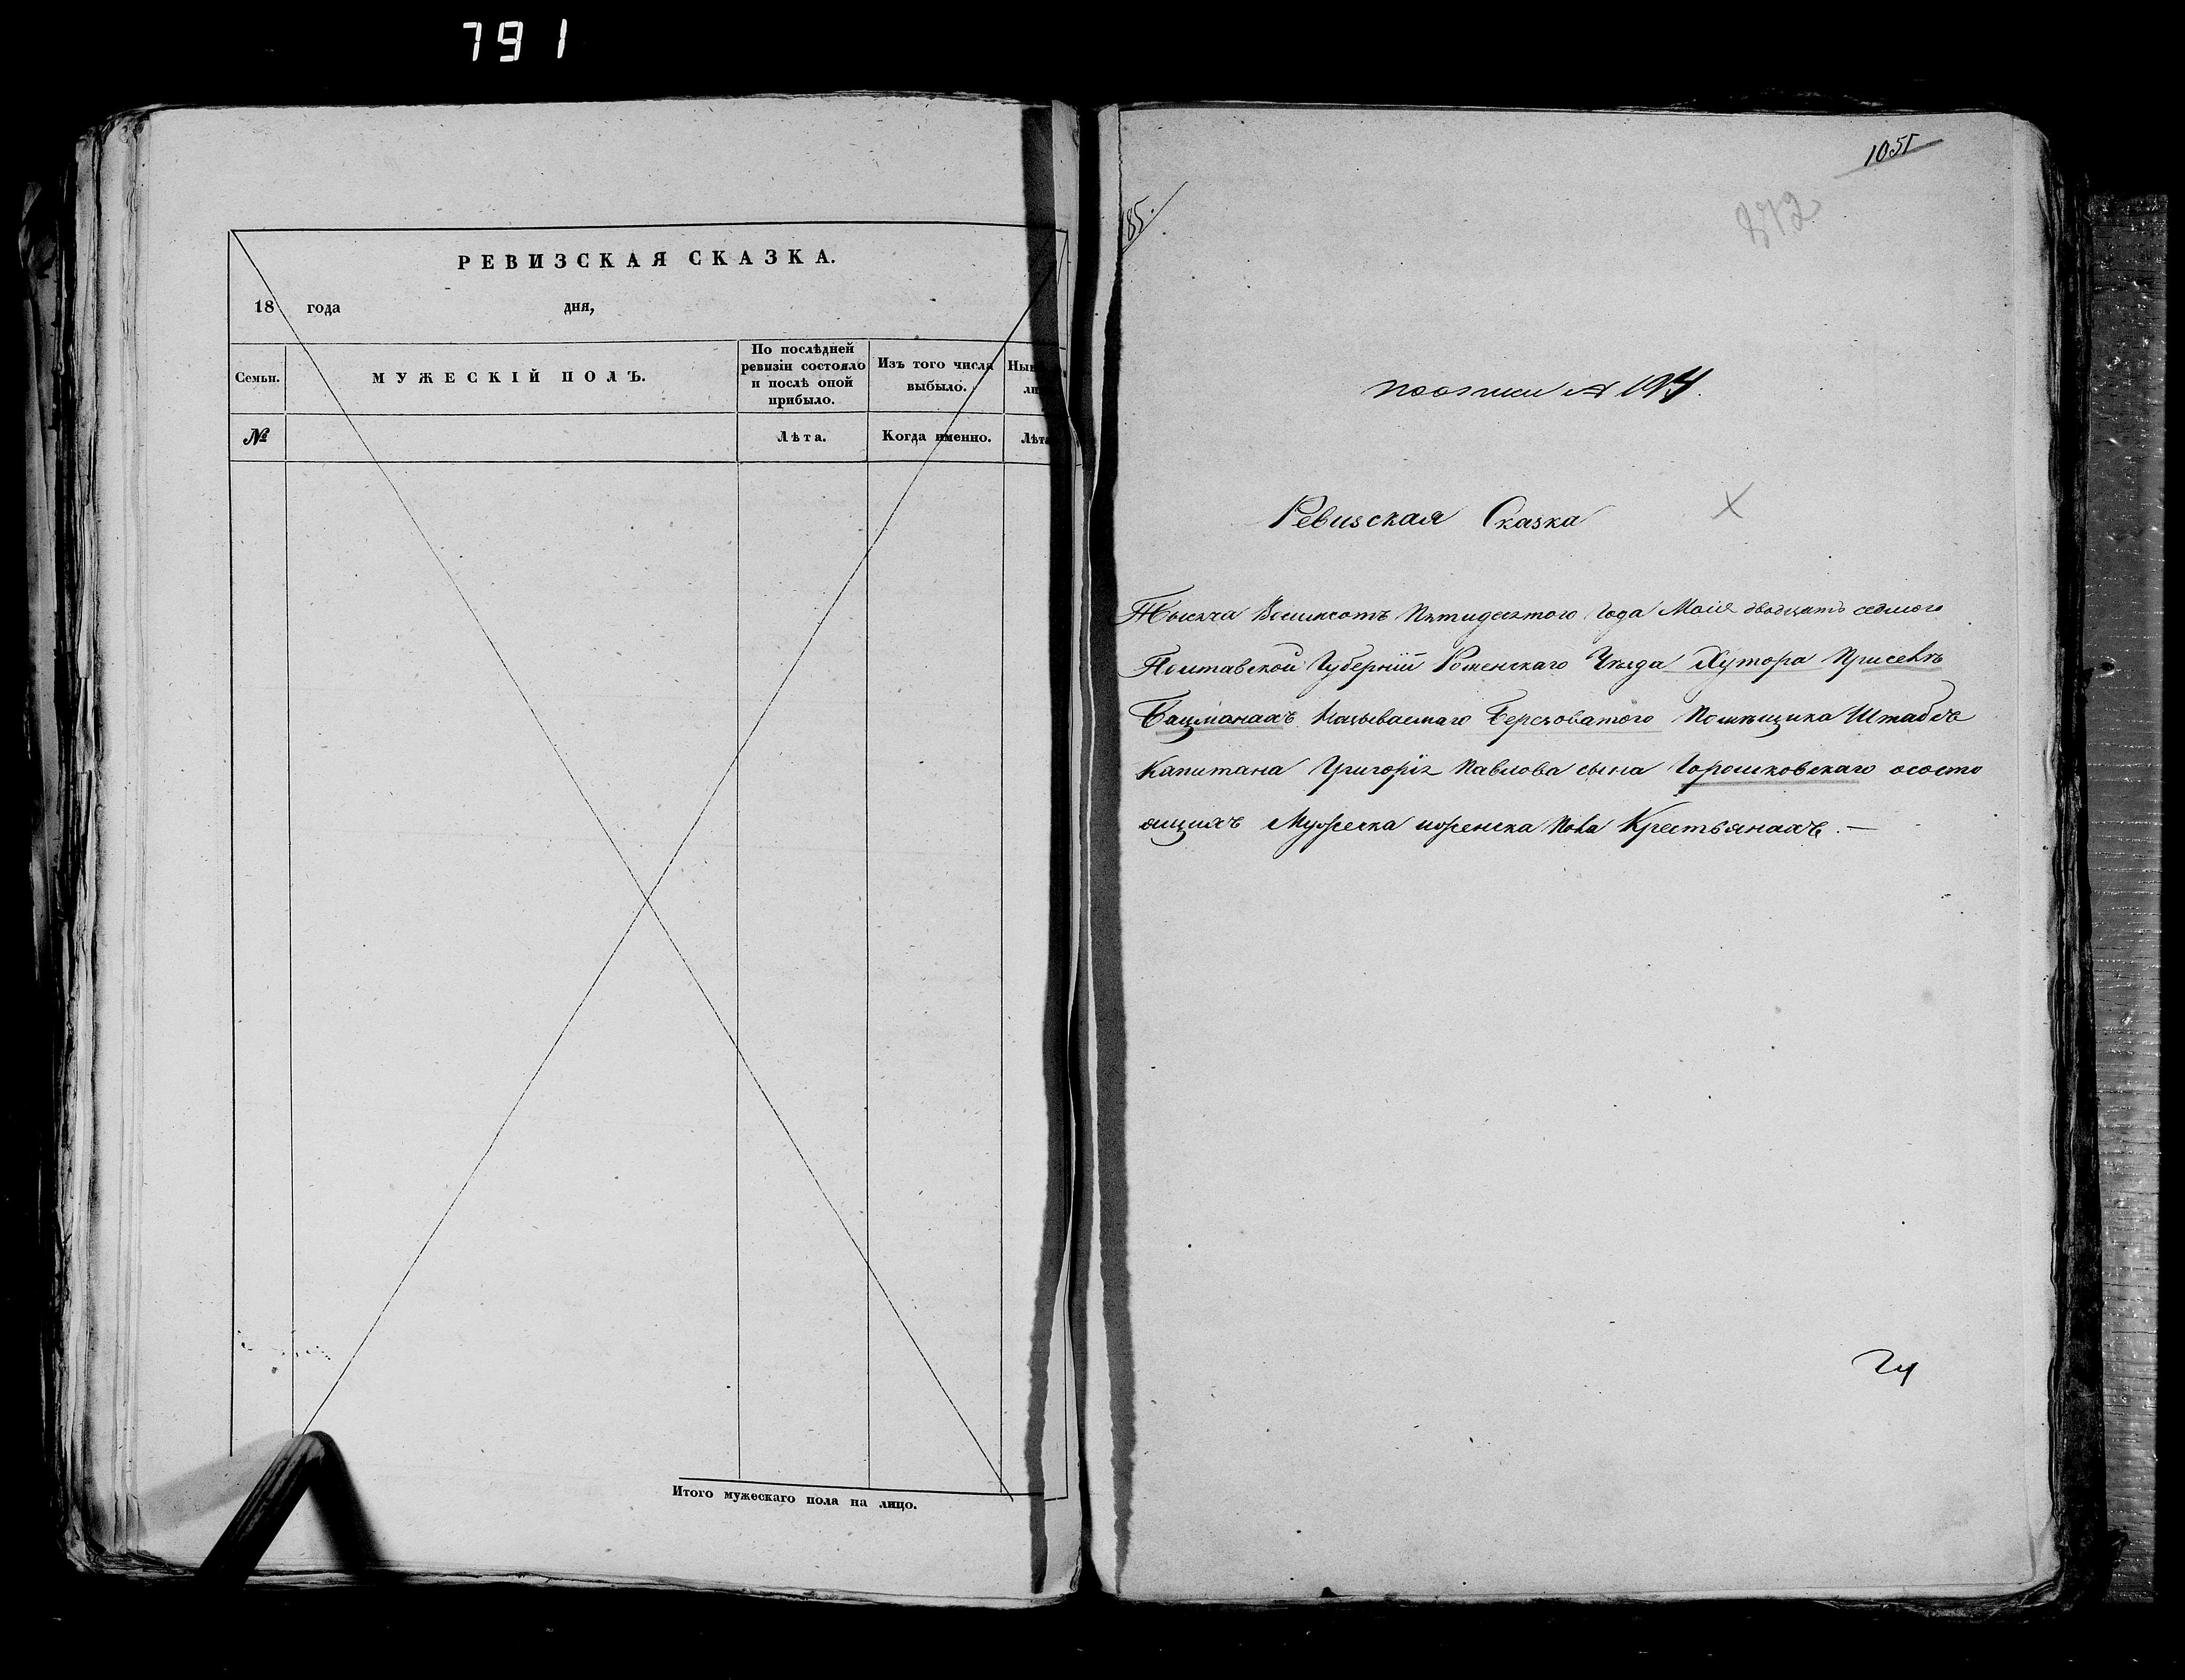 791
РЕВИЗСКАЯ СКАЗКА.
18 года дня,
Семьи.
МУЖЕСКІЙ ПОЛЪ.
По послѣдней ревизіи состояло и послѣ оной прибыло.
Изъ того числа выбыло.
№
Лѣта.
Когда именно.
Лѣта
Итого мужескаго пола на лицо.
1051
85.
872
поописи № 194.
Ревизская Сказка
Тысяча Восимсотъ Пятидесятого Года Маія двадцать седмого
Полтавской Губерніи Роменскаго Уѣзда Хутора Присевкъ
Бацманахъ Называемаго Березоватого Помѣщика Штабсъ
Капитана Григорія Павлова сына Горошковскаго ососто
ящихъ Мужеска иженска Пола Крестьянахъ. —
24